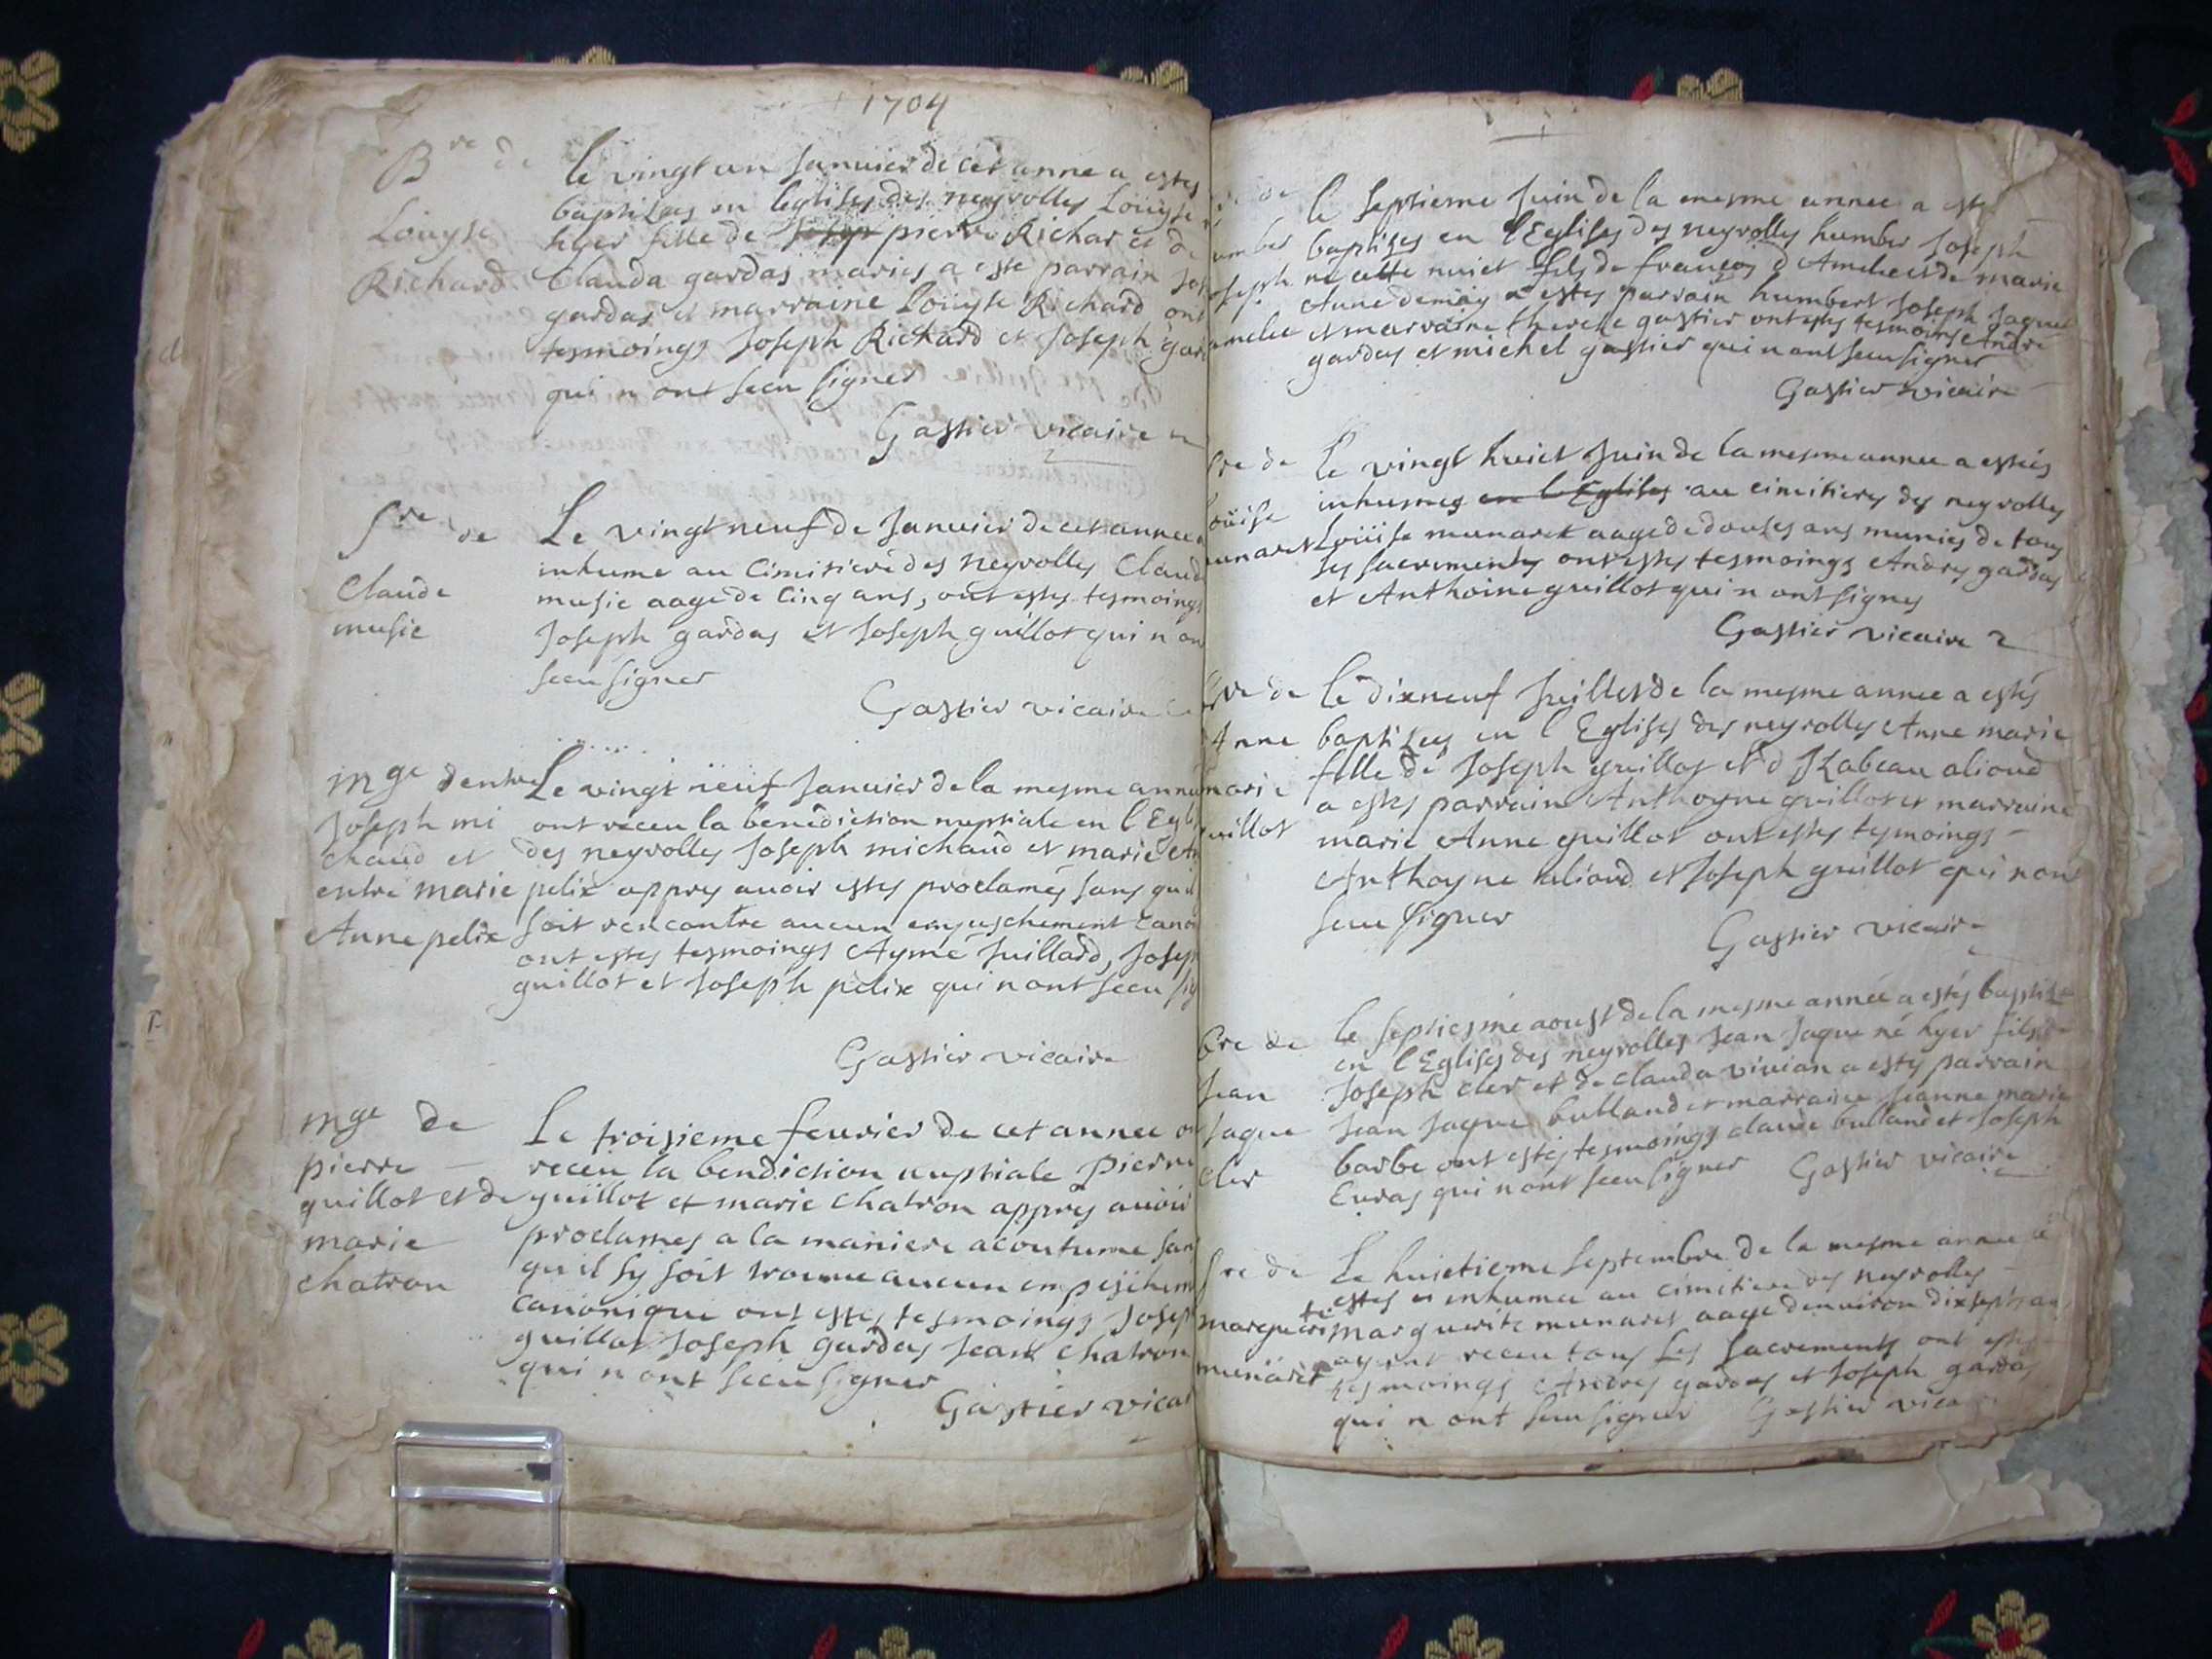 1704
Bre de
Louyse
Richard
le vingt un Januier de cet anne a estes
baptisees en leglises des neyrolles Louyse
hyer fille de pierre Richar et de
Clauda gardas maries a este parrain Jos
gardas et marraine Louyse Richard ont
tesmoings Joseph Richard et Joseph gar
qui n ont sceu signer
Gastier vicaire
Sre de
Claude
musie
Le vingt neuf de Januier de cet annee a
inhume au Cimitiere des neyrolles Claude
musie aage de Cinq ans, ont estes tesmoings
Joseph gardas et Joseph guillot qui n on
sceu signer
Gastier vicaire
mge dentre
Joseph mi
chaud et
entre marie
Anne pelix
Le vingt neuf Januier de la mesme anne
ont receu la benediction nuptiale en l Egl
des neyrolles Joseph michaud et marie An
pelix appres auoir estes proclames sans quil
soit rencontre aucun empeschement Cano
ont estes tesmoings Ayme Juillard, Josep
guillot et Joseph pelix qui n ont sceu sig
Gastier vicaire
mge de
pierre
guillot et de
marie
chatron
Le troisieme feurier de cet annee on
receu la bendiction nuptiale pierre
guillot et marie chatron appres auoir
proclames a la maniere acoutume san
qu il sy soit trouue aucun empeschem
canonique ont estes tesmoings Josep
guillot Joseph gardas Jean chatron
qui n ont sceu signer
Gastier vicai
de
umber
oseph
amelie
le septieme Juin de la mesme annee a este
baptises en l Eglises des neyrolles humber Joseph
ne cette nuict fils de françois d Amelie et de marie
Anne demay a estes parrain humbert Joseph Jaquet
et marraine therese gastier ont estes tesmoins Andre
gardas et michel gastier qui n ont sceu signer
Gastier vicaire
Sre de
ouise
munaret
Le vingt huict Juin de la mesme annee a estés
inhumes en l Eglises au cimitieres des neyrolles
Louise munaret aage de douses ans munies de tous
ses sacrements ont estes tesmoings Andre gardas
et Anthoine guillot qui n ont signes
Gastier vicaire
Bre de
Anne
marie
uillot
le dixneuf Juillet de la mesme annee a estés
baptisees en l Eglises des neyrolles Anne marie
fille de Joseph guillot et d JZabeau alioud
a estes parrain Anthoyne guillot et marraine
marie Anne guillot ont estes tesmoings
Anthoyne alioud et Joseph guillot qui n on
sceu signer
Gastier vicaire
Bre de
Jean
Jaque
cler
le septiesme aoust de la mesme année a estés baptise
en l Eglises des neyrolles Jean Jaque né hyer fils de
Joseph cler et de clauda vivian a estes parrain
Jean Jaque bulland et marraine Jeanne marie
barbe ont estés tesmoings claude bulland et Joseph
Euras qui n ont sceu signer Gastier vicaire
Sre de
marguerite
munaret
Le huictieme septembre de la mesme annee a
estes inhumee au cimitiere des neyrolles
marguerite munaret aage denuiron dixsept ans
ayent receu tous les sacrements ont estes
tesmoings Andres gardas et Joseph gardas
qui n ont sceu signer Gastier vica